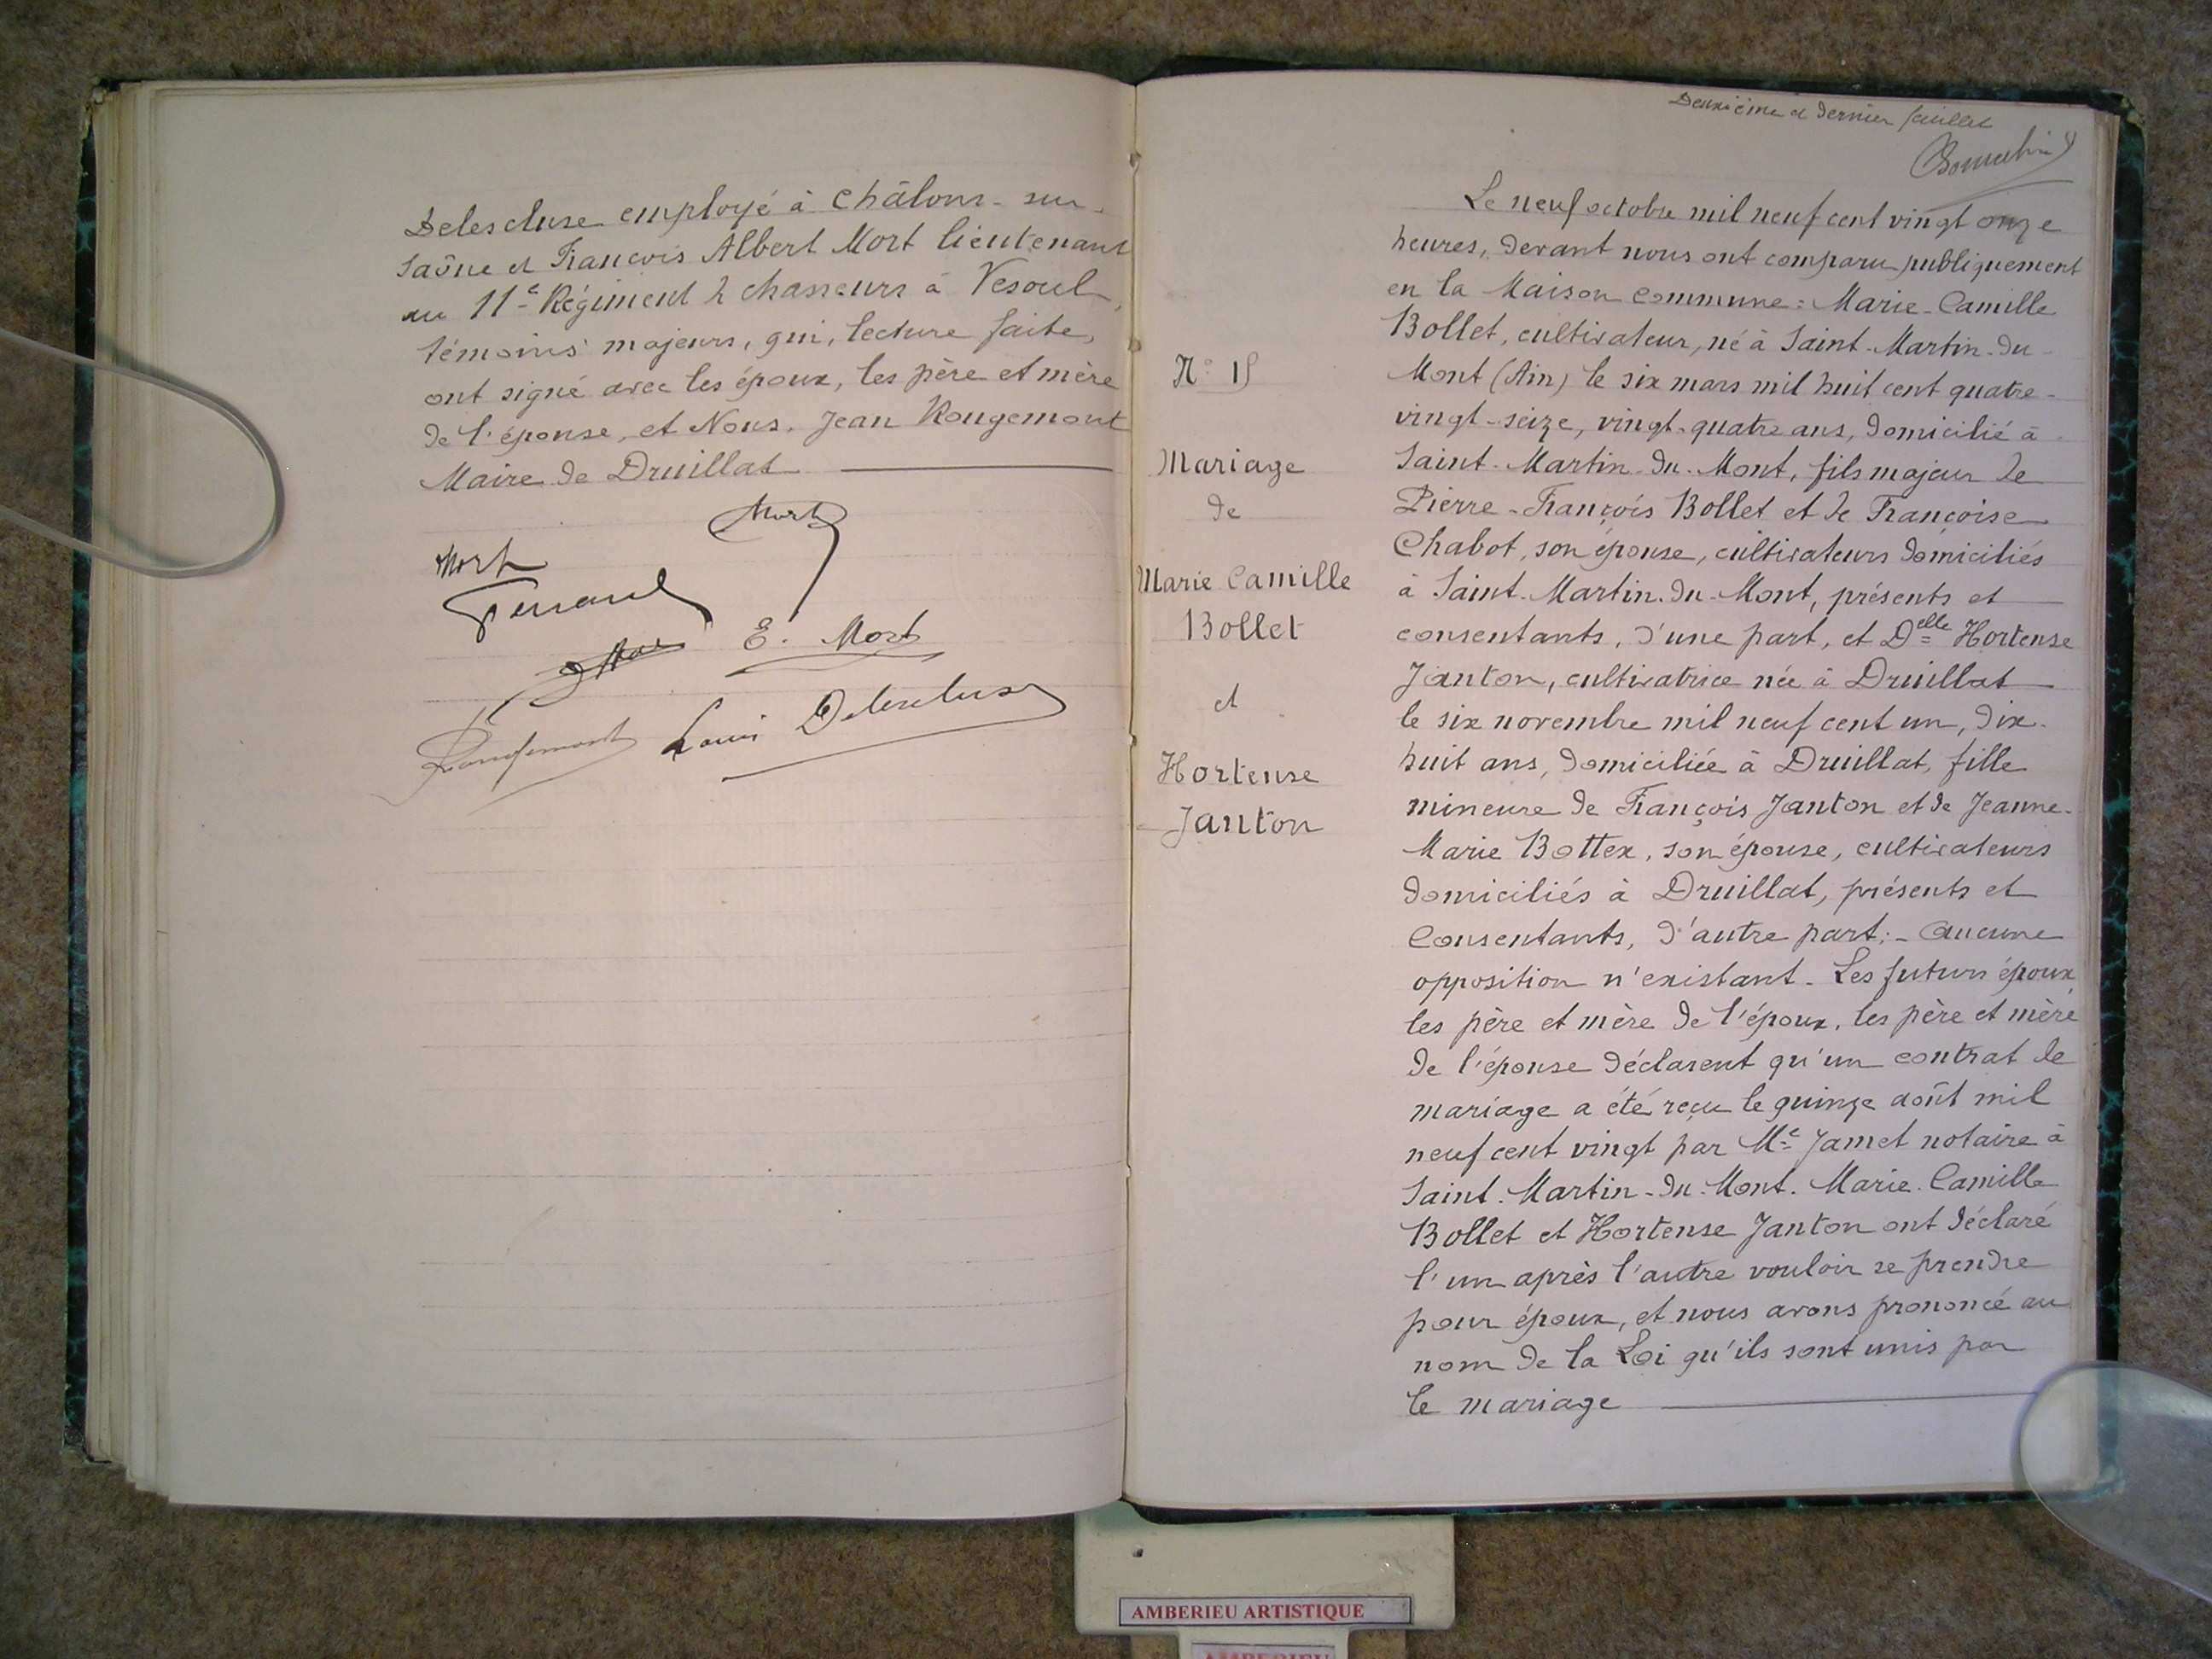 Delescluse employé à Châlons-sur-
Saône et François Albert Mort lieutenant
au 11e Régiment de chasseurs à Vesoul,
témoins majeurs, qui, lecture faite,
ont signé avec les époux, les père et mère
de l'épouse, et Nous, Jean Rougemont
Maire de Druillat
Mort
Mort
E. Mort
Rougemont Louis Delescluse
Deuxième et dernier feuillet
N° 15
Mariage
de
Marie Camille
Bollet
et
Hortense
Janton
Le neuf octobre mil neuf cent vingt onze
heures, devant nous ont comparu publiquement
en la Maison commune : Marie-Camille
Bollet, cultivateur, né à Saint-Martin-du-
Mont (Ain) le six mars mil huit cent quatre-
vingt-seize, vingt-quatre ans, domicilié à
Saint-Martin-du-Mont, fils majeur de
Pierre-François Bollet et de Françoise
Chabot, son épouse, cultivateurs domiciliés
à Saint-Martin-du-Mont, présents et
consentants, d'une part, et Delle Hortense
Janton, cultivatrice née à Druillat
le six novembre mil neuf cent un, dix-
huit ans, domiciliée à Druillat, fille
mineure de François Janton et de Jeanne-
Marie Bottex, son épouse, cultivateurs
domiciliés à Druillat, présents et
Consentants, d'autre part ;- aucune
opposition n'existant. Les futurs époux,
les père et mère de l'époux, les père et mère
de l'épouse déclarent qu'un contrat de
mariage a été reçu le quinze août mil
neuf cent vingt par Me Jamet notaire à
Saint-Martin-du-Mont. Marie-Camille
Bollet et Hortense Janton ont déclaré
l'un après l'autre vouloir se prendre
pour époux, et nous avons prononcé au
nom de la Loi qu'ils sont unis par
le mariage
AMBERIEU ARTISTIQUE
AMBERIEU